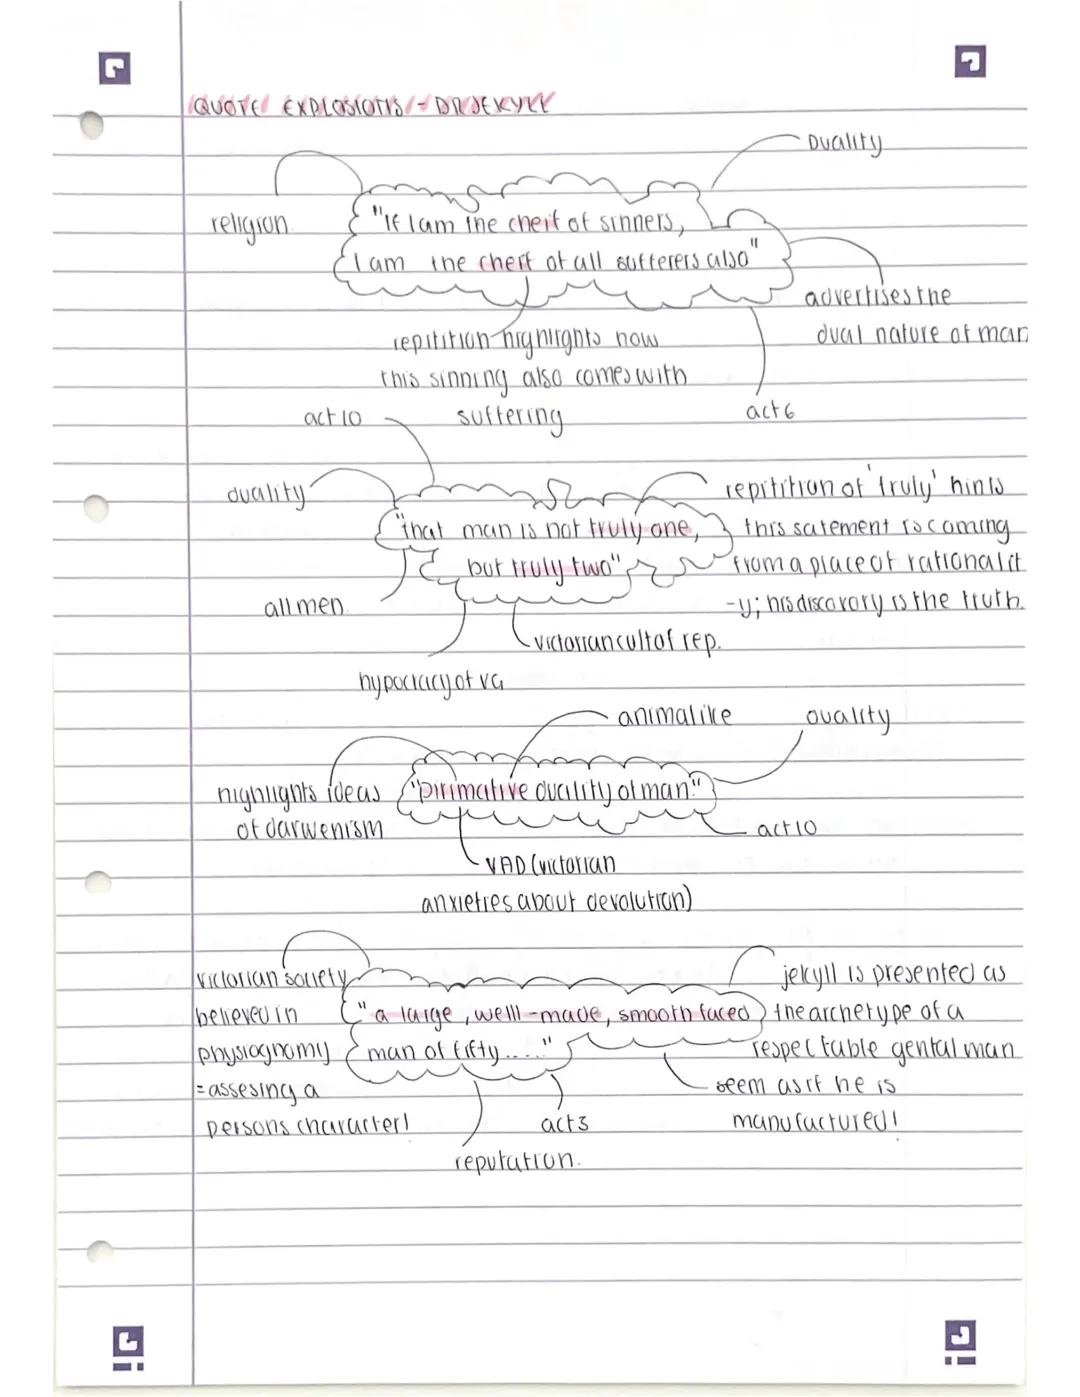 QUOTE EXPLOSIONS - DR JEKYLL
Duality
religion
"If I am the cheif of sinners,
I am the cheif of all sufferers also"
advertises the
dual nature of man
repitition highlights how
this sinning also comes with
suffering
act 6
act 10
duality
"that man is not truly one,
but truly two"
repitition of 'truly' hints
this satement is coming
from a place of rationalit
-y; his discovory is the truth.
all men
victorian cult of rep.
hypocricy of VG
animalike
duality
highlights ideas
of darwenism
"pirimative duality of man."
act 10
VAD (victorian
anxieties about devolution)
victorian society
believed in
physiognomy
= assesing a
persons character!
"a large, welll-made, smooth faced
man of fifty...."
jekyll is presented as
the archetype of a
respectable gental man
seem as if he is
manufactured!
act 3
reputation.